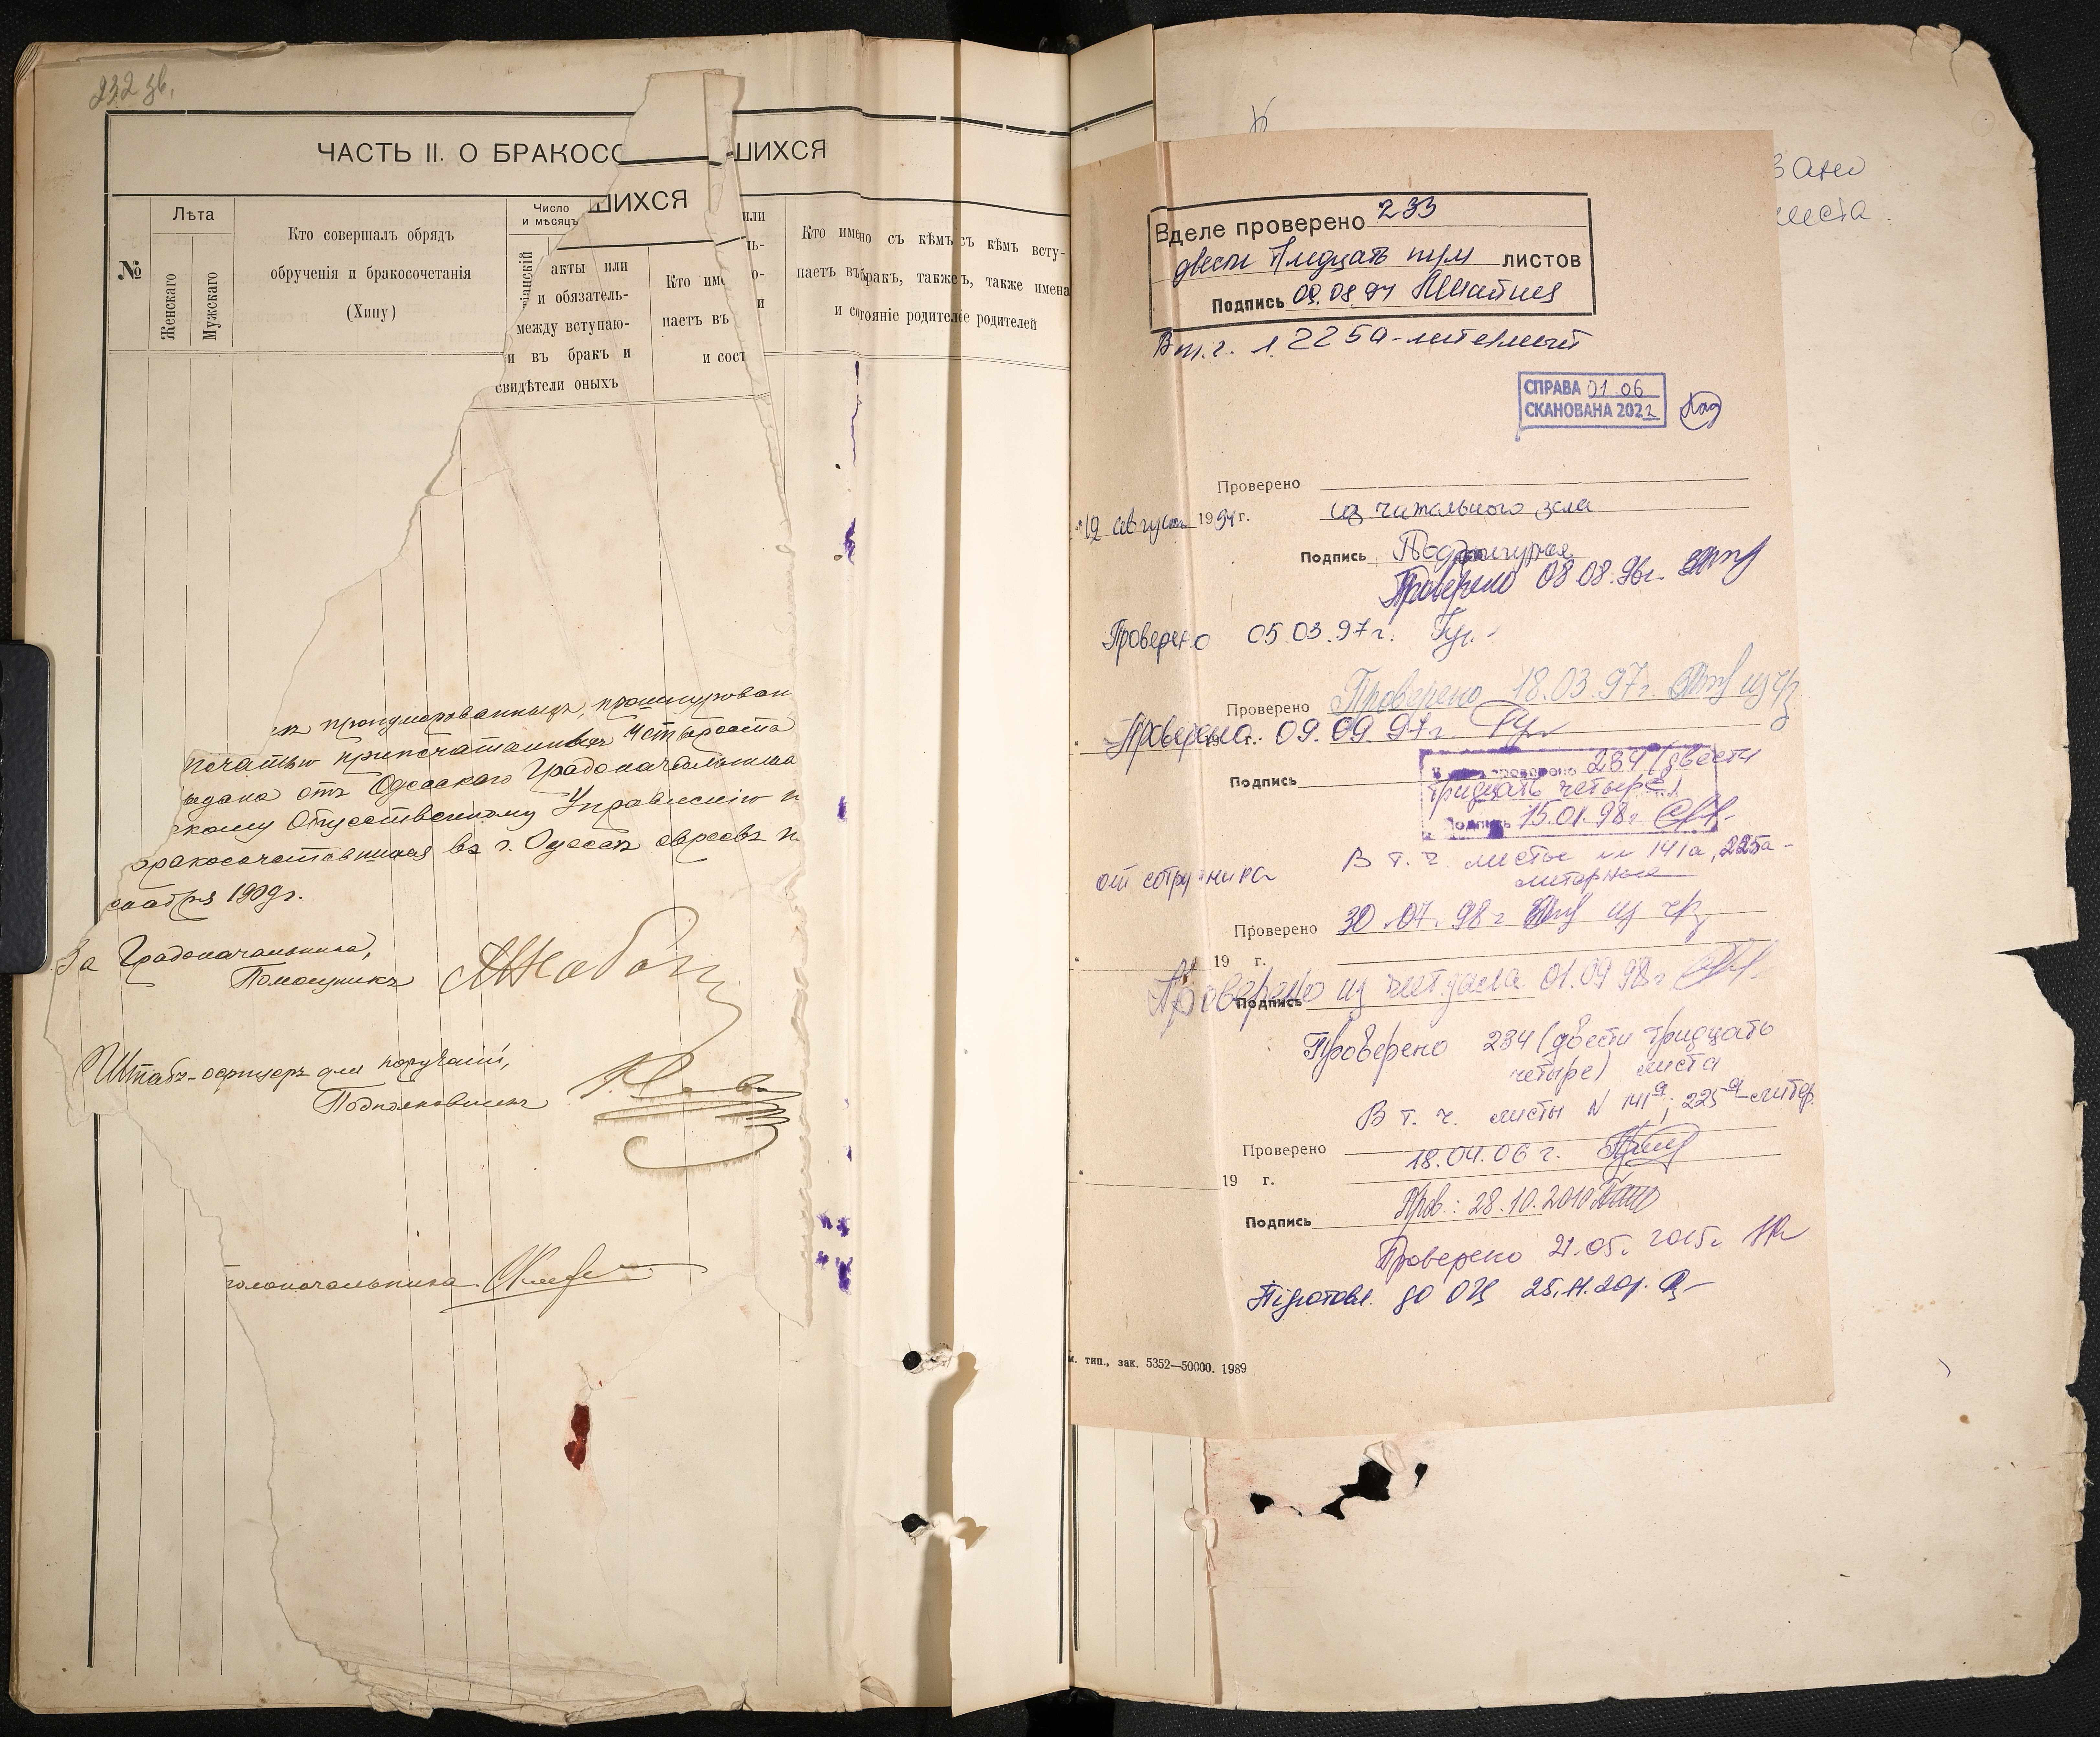 232 зв.
ЧАСТЬ II. О БРАКОСО
ШИХСЯ
ШИХСЯ
№
Лѣта
Женскаго
Мужскаго
Кто совершалъ обрядъ
обрученія и бракосочетанія
(Хипу)
Число
и мѣсяцъ
іанскій
акты или
и обязатель-
между вступаю-
и въ бракъ и
свидѣтели оныхъ
Кто име
паетъ въ
и сост
или
ль-
о-
и
Кто имено съ кѣмъ съ кѣмъ всту-
паетъ въ бракъ, также ъ, также имена
и состояніе родителе родителей
пронумерованныхъ, прошнурован
печатью припечатанныхъ четыреста
выдана отъ Одесскаго Градоначальника
скому Общественному Управленію
бракосочетавшихся въ г. Одессѣ евреевъ
1909 г.
За Градоначальника,
Помощникъ
Штабъ-офицеръ для порученій,
Подполковникъ
толоначальника
зано
листа.
В деле проверено 233
двести тридцать три листов
Подпись 09.08.94
В т.ч. л. 225а-литерный
СПРАВА 01.06
СКАНОВАНА 2022
Проверено
"19 августа 1994 г.
из читального зала
Подпись
Проверено 08.08.96г.
Проверено 05.03.97 г.
Проверено Проверено 18.03.97г. из чз
Проверено 09.09.97г
19 г.
Подпись
проверено 234 (двести
тридцать четыре)
Подпись 15.01.98г
В т.ч. листы 141а, 225а-
литерные
от сотрудника
Проверено 30.07.98г из чз
19 г.
Проверено из чит.зала 01.09.98г
Подпись
Проверено 234 (двести тридцать
четыре) листа
В т. ч. листы N 141а, 225а-литер.
Проверено
18.04.06 г.
19 г.
Пров.: 28.10.2010
Подпись
Проверено 21.05. 2015г.
Підготовл. до ОЦ 25.11.
м. тип., зак. 5352—50000. 1989